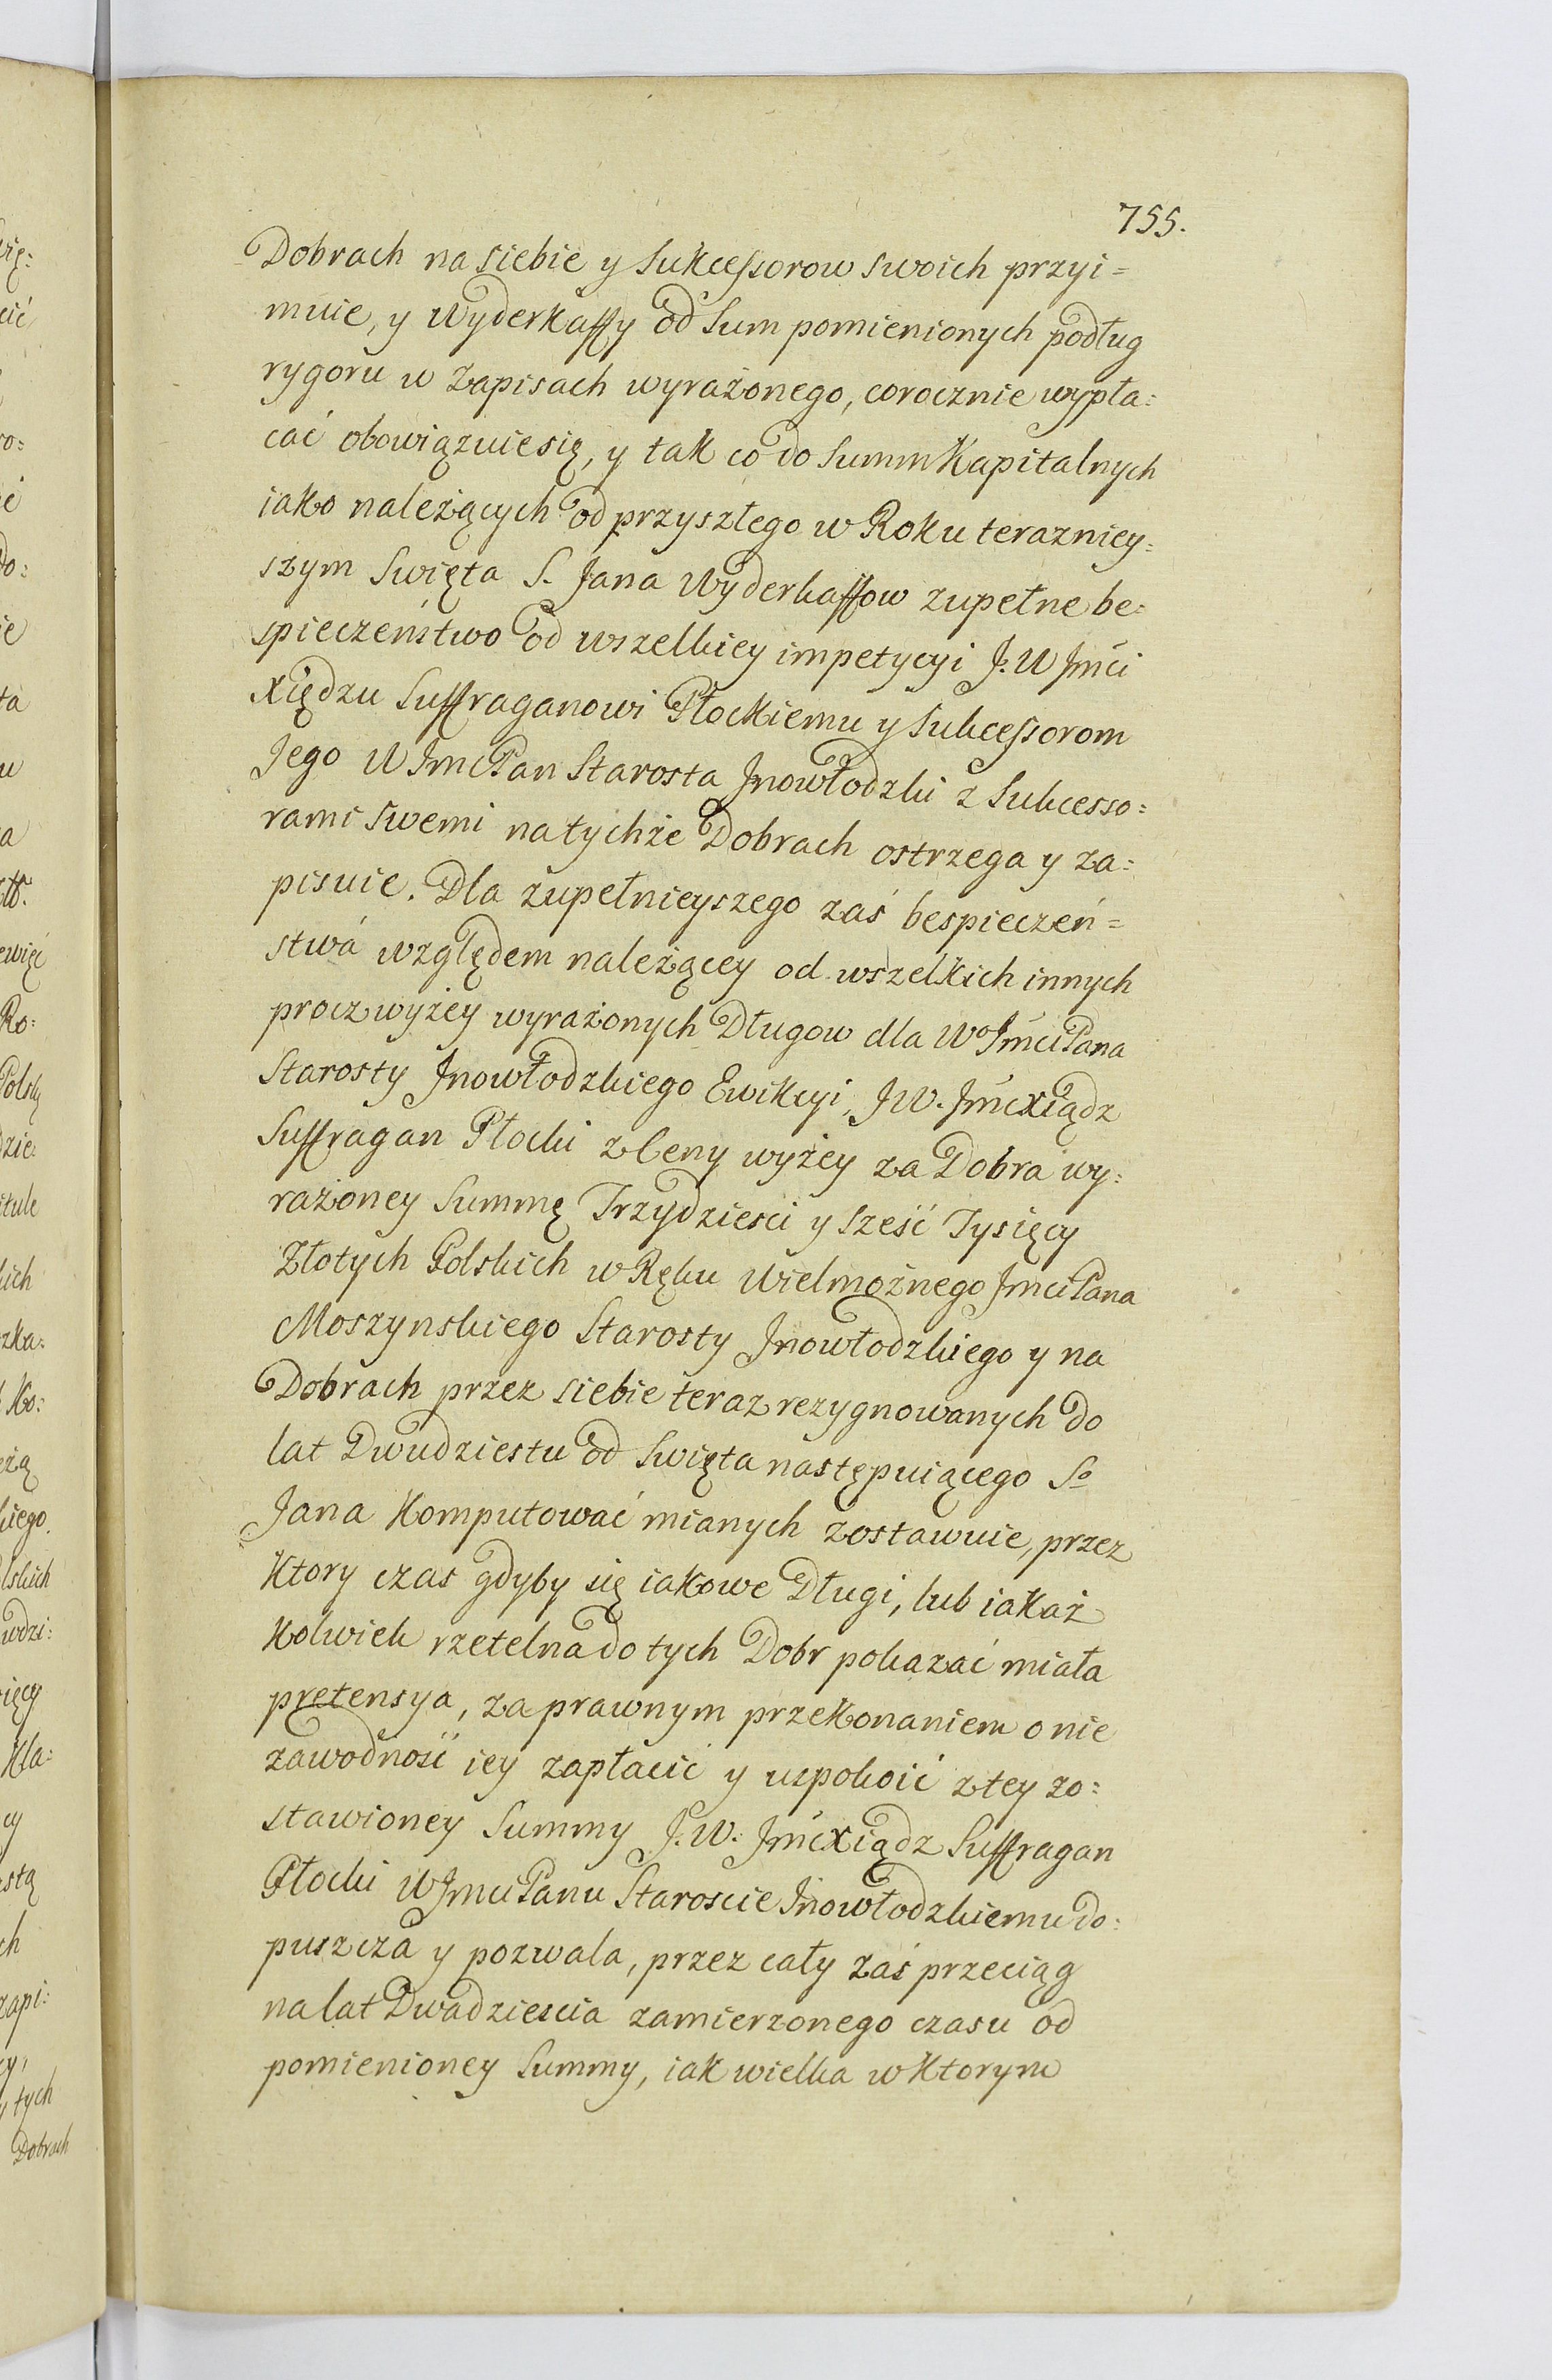 755.
Dobrach na siebie y Sukcessorow swoich przyi=
muie, y Wyderkaffy od Sum pomienionych podług
rygoru w Zapisach wyrażonego, corocznie wypła=
cać obowiązuie się, y tak co do Summ Kapitalnych
iako należących od przyszłego w Roku terazniey=
szym Swięta S. Jana Wyderkaffow zupełne be=
spieczeństwo od wszelkiey impetycyi J. W Jmći
Xiędzu Suffraganowi Płockiemu y Sukcessorom
Jego W Jmci Pan Starosta Jnowłodzki z Sukcesso=
rami Swemi na tychże Dobrach ostrzega y za=
pisuie. Dla zupełnieyszego zaś bespieczeń=
stwá względem należącey od wszelkich innych
procz wyżey wyrażonych Długow dla Wo Jmći Pana
Starosty Jnowłodzkiego Ewikcyi, J W. Jmć Xiądz
Suffragan Płocki z Ceny wyżey za Dobra wy=
rażoney Summę Trzydziesci y Sześć Tysięcy
Złotych Polskich w Ręku Wielmożnego Jmci Pana
Moszynskiego Starosty Jnowłodzkiego y na
Dobrach przez siebie teraz rezygnowanych do
lat Dwudziestu od Swięta następuiącego So
Jana Komputować mianych zostawuie, przez
Ktory czas gdyby się iakowe Długi, lub iakaż
Kolwiek rzetelna do tych Dobr pokazać miała
pretensya, za prawnym przekonaniem o nie
zawodność iey zapłacić y uspokoić z tey zo=
stawioney Summy J. W. Jmć Xiądz Suffragan
Płocki W Jmci Panu Staroscie Jnowłodzkiemu do=
puszcza y pozwala, przez cały zaś przeciąg
na lat Dwadziescia zamierzonego czasu od
pomienioney Summy, iak wielka w Ktorym